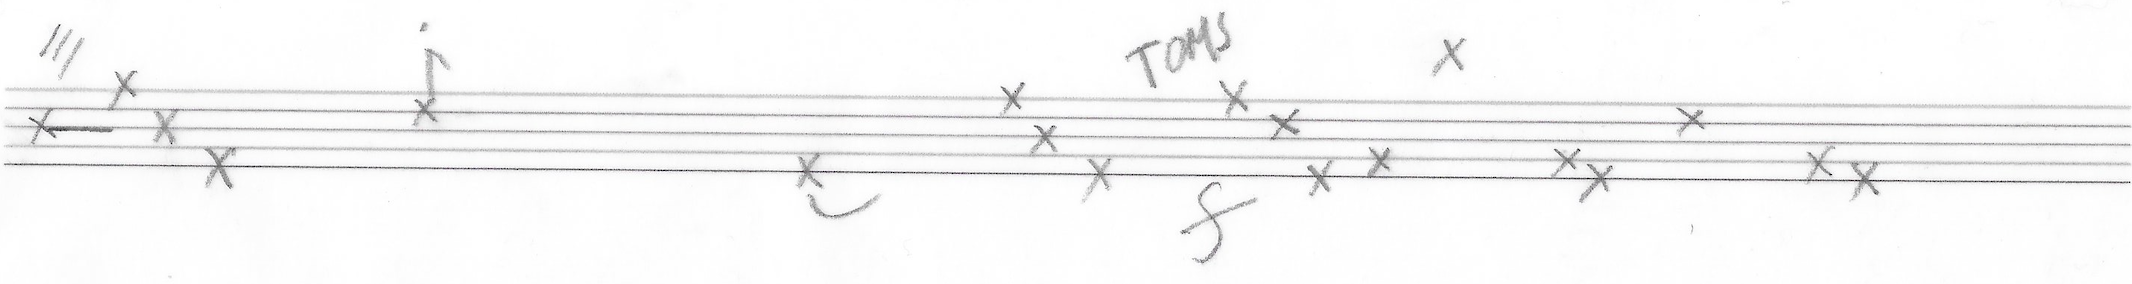 TOMS
f